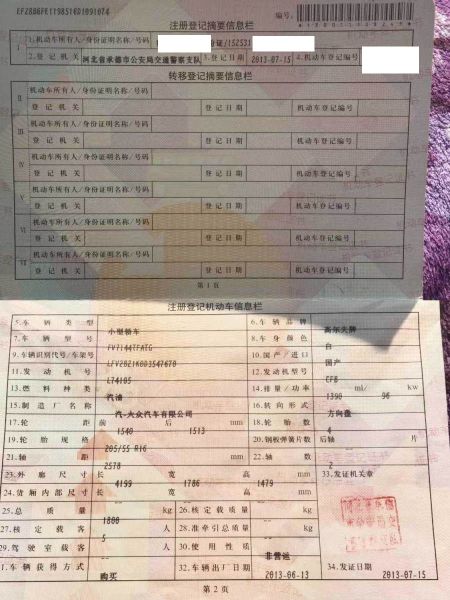 注册登记摘要信息栏
编号:
I
1.机动车所有人/身份证明名称/号码
2.登记机关 河北省承德市公安局交通警察支队 3.登记日期 2013-07-15 4.机动车登记编号
转移登记摘要信息栏
II 机动车所有人/身份证明名称/号码
登记机关 登记日期 机动车登记编号
III 机动车所有人/身份证明名称/号码
登记机关 登记日期 机动车登记编号
IV 机动车所有人/身份证明名称/号码
登记机关 登记日期 机动车登记编号
V 机动车所有人/身份证明名称/号码
登记机关 登记日期 机动车登记编号
VI 机动车所有人/身份证明名称/号码
登记机关 登记日期 机动车登记编号
VII 机动车所有人/身份证明名称/号码
登记机关 登记日期 机动车登记编号
第1页
注册登记机动车信息栏
5.车辆类型 小型轿车 6.车辆品牌 高尔夫牌
7.车辆型号 8.车身颜色 白
9.车辆识别代号/车架号 10.国产/进口 国产
11.发动机号 L74105 12.发动机型号 CFB
13.燃料种类 汽油 14.排量/功率 1390 ml/ 96 kw
15.制造厂名称 一汽-大众汽车有限公司 16.转向形式 方向盘
17.轮距 前 1540 后 1513 mm 18.轮胎数 4
19.轮胎规格 205/55 R16 20.钢板弹簧片数 后轴 片
21.轴距 2578 mm 22.轴数 2
23.外廓尺寸 长 4199 宽 1786 高 1479 mm 33.发证机关章
24.货厢内部尺寸 长 宽 高 mm
25.总质量 1800 kg 26.核定载质量 kg
27.核定载客 5 人 28.准牵引总质量 kg
29.驾驶室载客 人 30.使用性质 非营运
31.车辆获得方式 购买 32.车辆出厂日期 2013-06-13 34.发证日期 2013-07-15
第2页